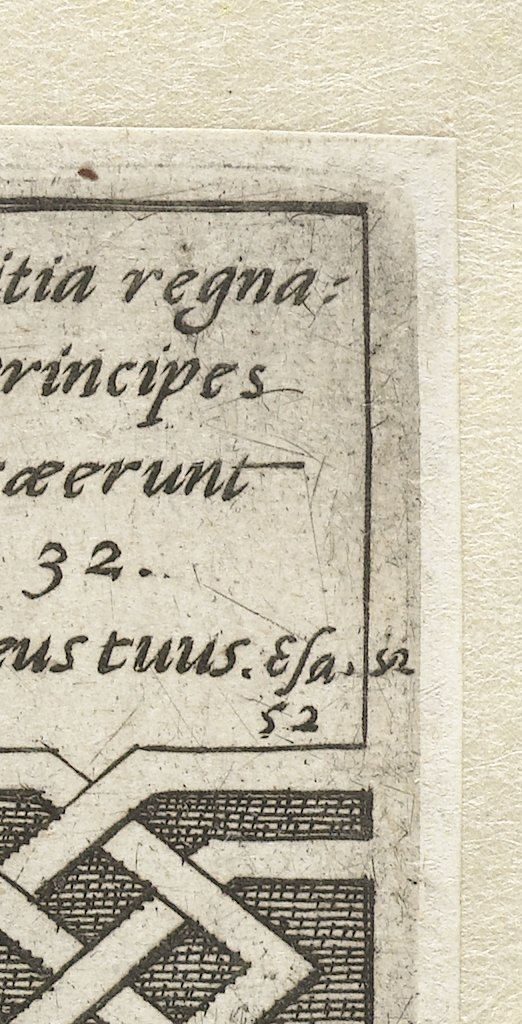 itia regna:
principes
æerunt
32.
eus tuus. Esa. 52
52